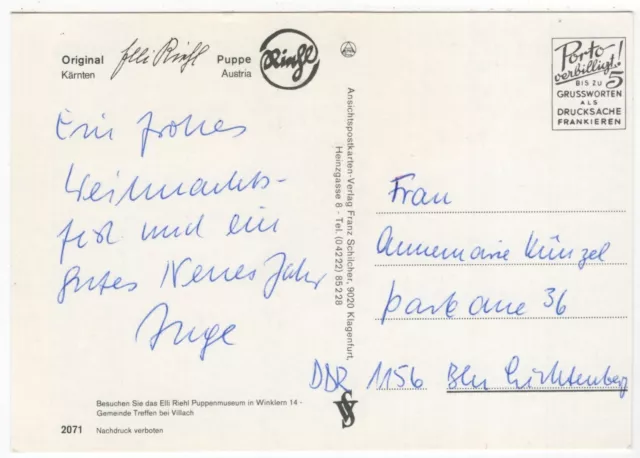 Original Elli Riehl Puppe
Kärnten Austria
Riehl
Porto
verbilligt!
BIS ZU 5
GRUSSWORTEN
ALS
DRUCKSACHE
FRANKIEREN
Ein frohes
Weihnachts-
fest und ein
gutes Neues Jahr
Inge
Ansichtspostkarten-Verlag Franz Schilcher, 9020 Klagenfurt,
Heinzgasse 8 - Tel. (04222) 85 2 28
Frau
Annemarie Künzel
parkaue 36
DDR 1156 Bln Lichtenberg
Besuchen Sie das Elli Riehl Puppenmuseum in Winklern 14 -
Gemeinde Treffen bei Villach
2071 Nachdruck verboten